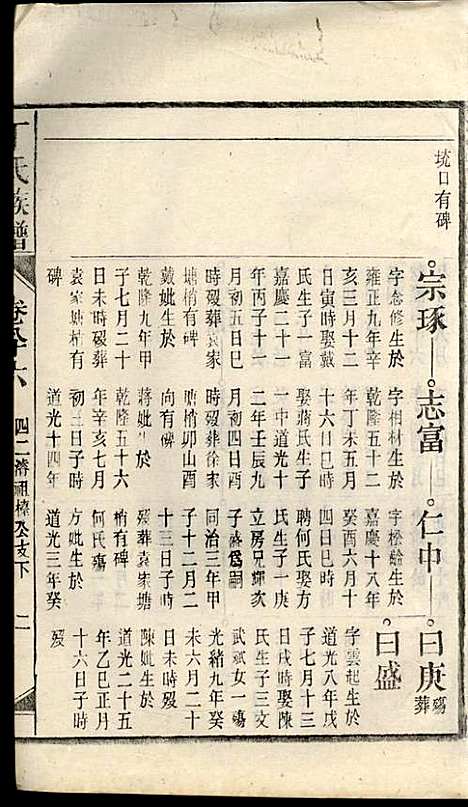 𡊢口有碑
宗琢
字念修生於
雍正九年辛
亥三月十二
日寅時娶戴
氏生子一富
嘉慶二十一
年丙子十一
月初五日巳
時殁葬袁家
塘梢有碑
戴妣生於
乾隆九年甲
子七月二十
日未時殁葬
袁家塘梢有
碑
志富
字相材生於
乾隆五十二
年丁未五月
十六日巳時
娶蔣氏生子
一中道光十
二年壬辰九
月初四日酉
時殁葬徐家
塘梢卯山酉
向有碑
蔣妣生於
乾隆五十六
年辛亥七月
初三日子時
道光十四年
仁中
字松齡生於
嘉慶十八年
癸酉六月十
四日巳時
聘何氏娶方
氏生子一庚
立房兄輝次
子盛爲嗣
同治三年甲
子十二月二
十三日子時
殁葬袁家塘
梢有碑
何氏殤
方妣生於
道光三年癸
日庚
殤葬
日盛
字雲起生於
道光八年戊
子七月十三
日戌時娶陳
氏生子三文
武斌女一殤
光緒九年癸
未六月二十
日未時殁
陳妣生於
道光二十五
年乙巳正月
十六日子時
殁
丁氏族譜
卷之六
四二濟祖檯公支下
二